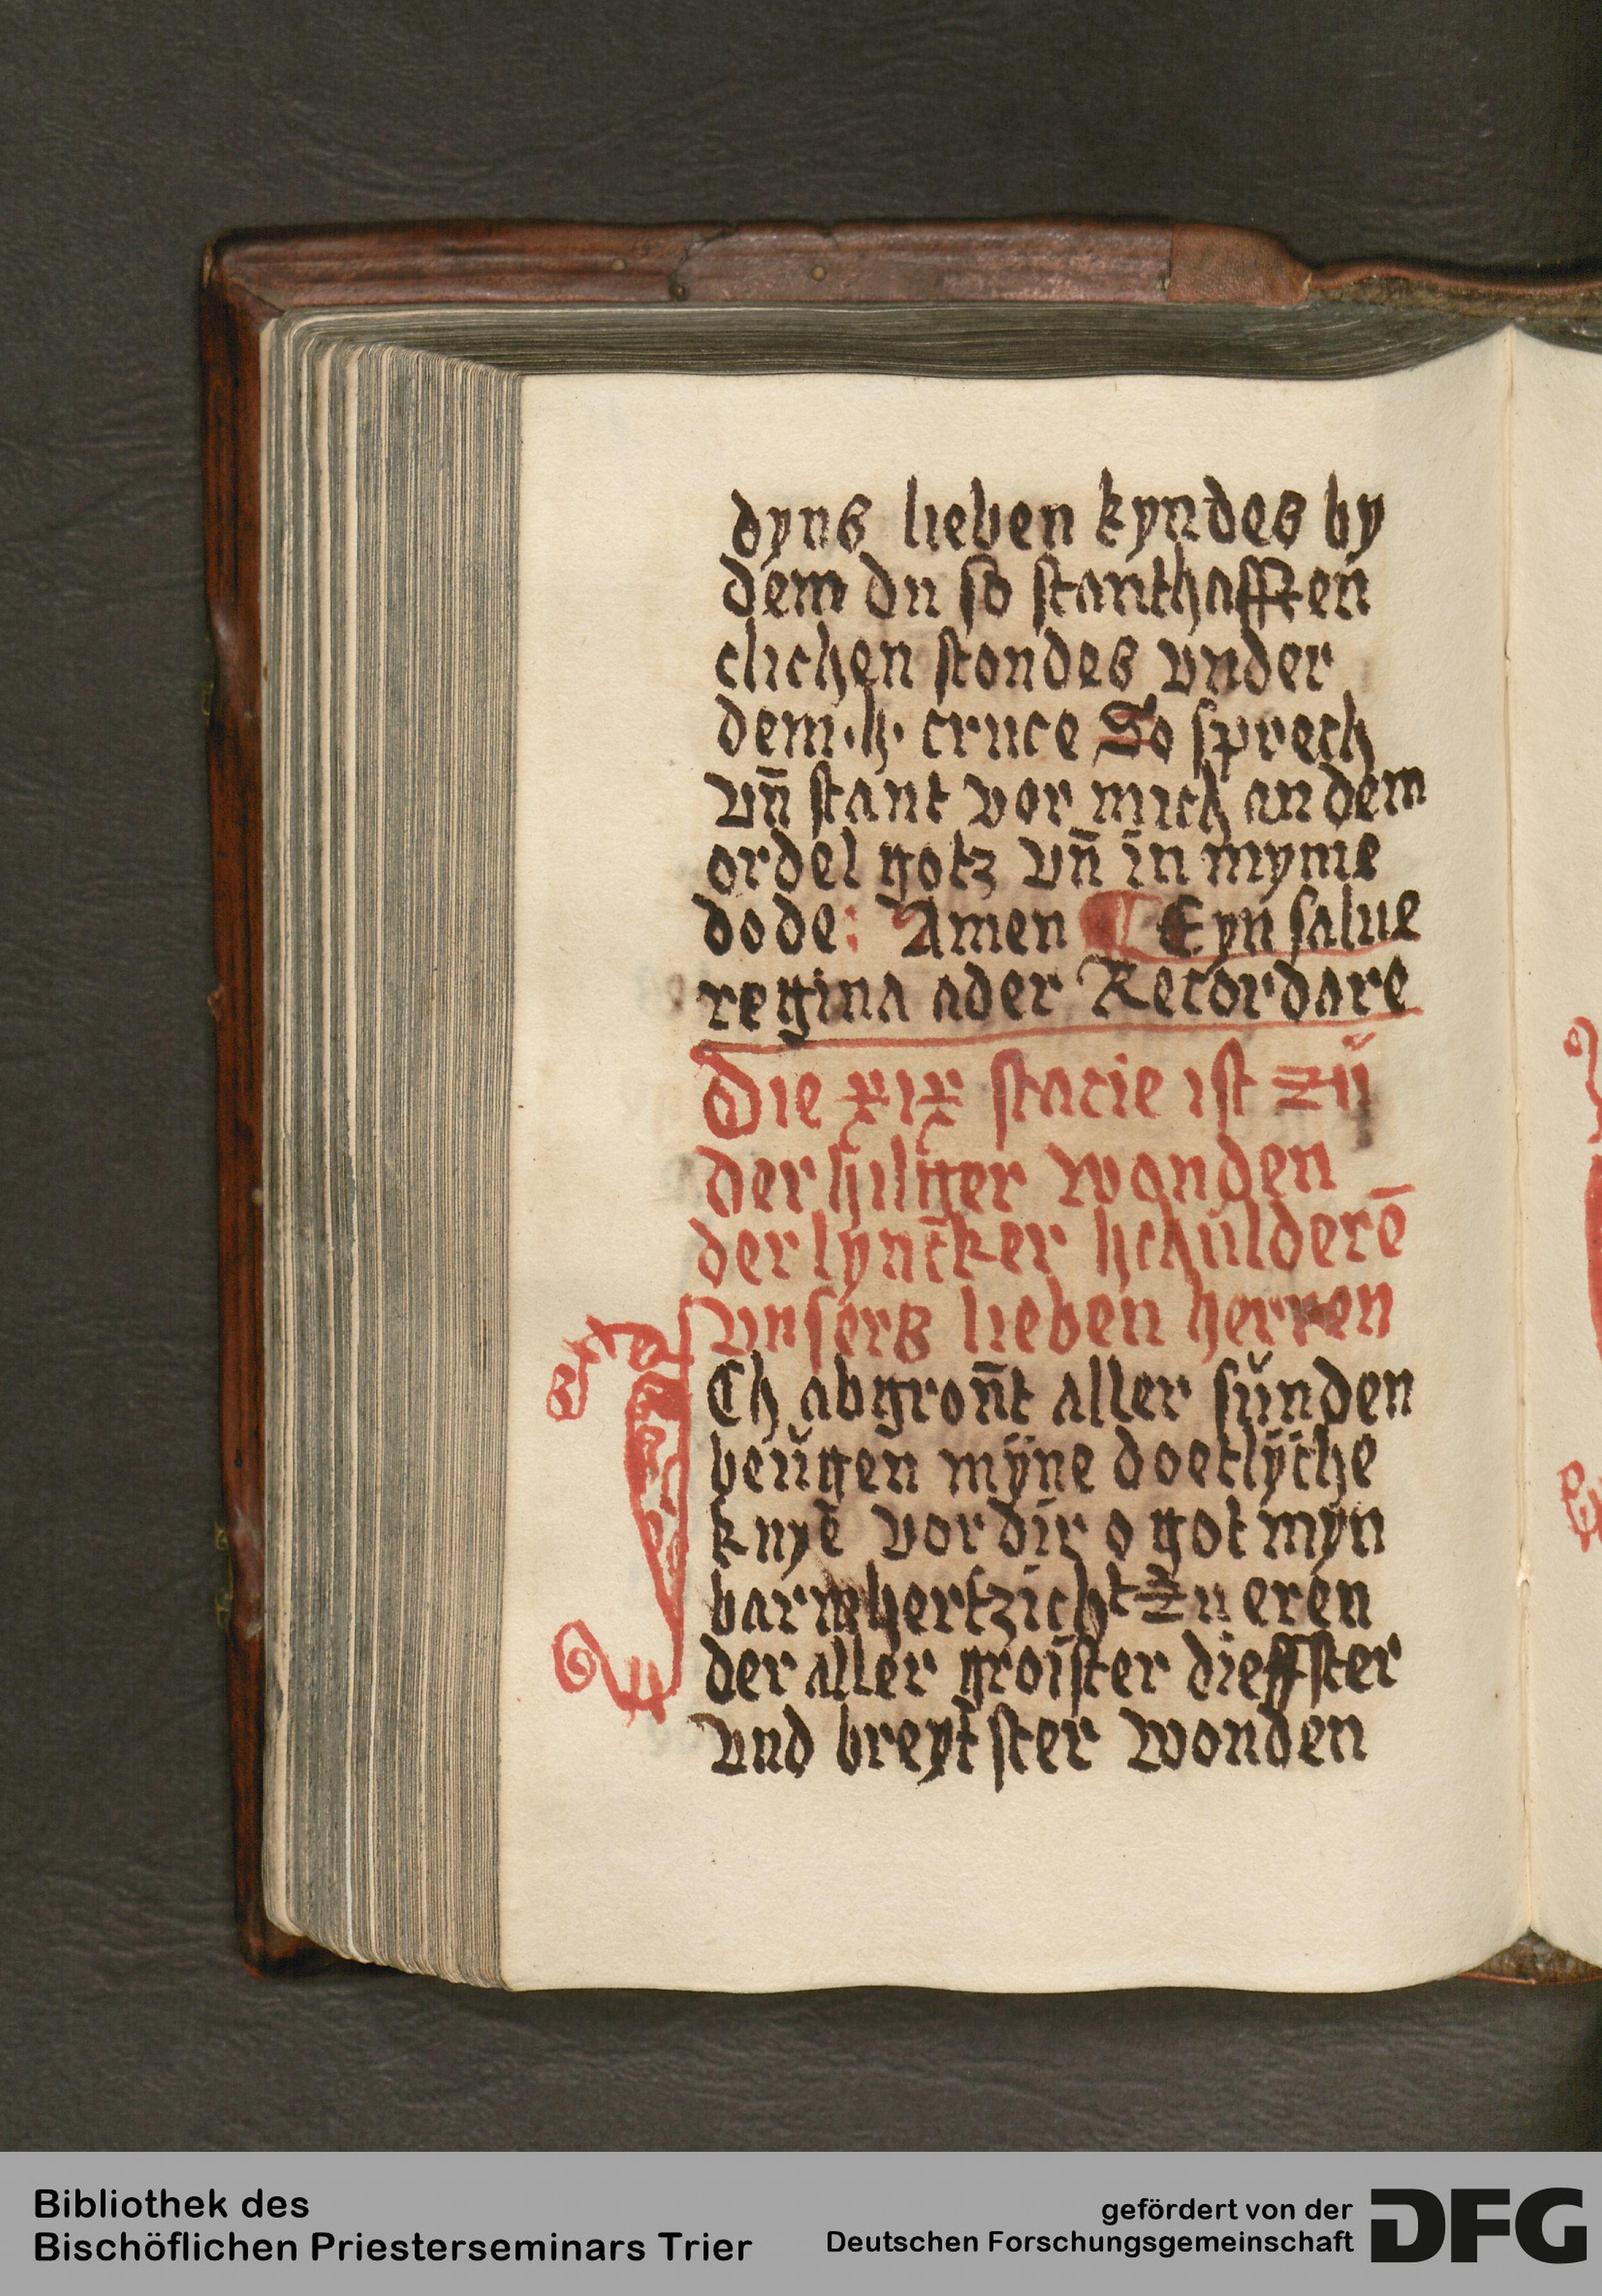 dyns lieben kyndes by
dem du so stanthafften
clichen stondes vnder
dem ·h· cruce So sprech
vn̄ stant vor mich an dem
ordel gotz vn̄ in myme
dode: Amen ¶ Eyn salue
regina ader Recordare
Die xix stacie ist zů
der hilger wonden
der lyncker schulderē
vnsers lieben herren
ICh abgron̄t aller sunden
beugen myne doetlyche
knye vor dir o got myn
barmhertzicht zu eren
der aller groister dieffster
vnd breytster wonden
Bibliothek des
Bischöflichen Priesterseminars Trier
gefördert von der
Deutschen Forschungsgemeinschaft
DFG